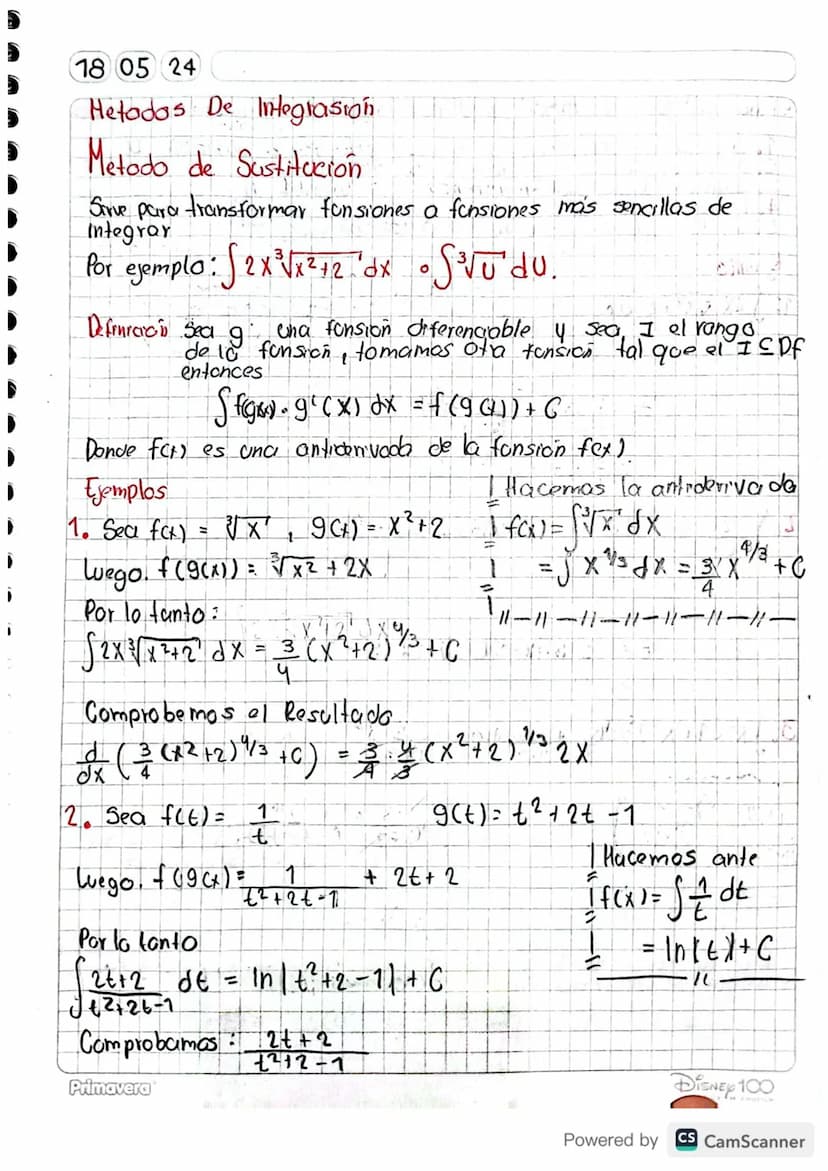 18 05 24
Metodos De Integrasión
Metodo de Sustitución
Sirve para transformar fonsiones a fonsiones más sencillas de
integrar
Por ejemplo: ∫2x∛(x²+2) dx o ∫∛U dU.
Definición Sea g: una fonsión diferenciable y sea I el rango
de la fonsión, tomamos otra fonsión tal que el I ⊆ Df
entonces
∫f(g(x)) · g'(x) dx = f(g(x)) + C
Donde f(x) es una antiderivada de la fonsión f(x).
Ejemplos
1. Sea f(x) = ∛x , g(x) = x²+2
Luego. f(g(x)) = ∛x² + 2x
Por lo tanto:
∫2x∛(x²+2) dx = 3/4 (x²+2)^4/3 + C
Hacemos la antiderivada
f(x) = ∫∛x dx
= ∫x^1/3 dx = 3/4 x^4/3 + C
Comprobemos el Resultado
d/dx (3/4 (x²+2)^4/3 + C) = 3/4 · 4/3 (x²+2)^1/3 2x
2. Sea f(t) = 1/t g(t) = t²+2t-1
Luego. f(g(x) = 1/(t²+2t-1) + 2t+2
Hacemos ante
f(x) = ∫1/t dt
= ln|t|+C
Por lo tanto
∫(2t+2)/(t²+2t-1) dt = ln|t²+2-1| + C
Comprobamos: (2t+2)/(t²+2-1)
Primavera
Disney 100
Powered by CS CamScanner